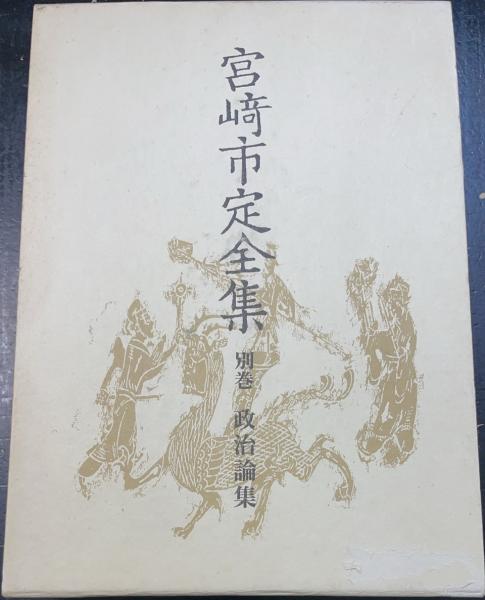 宮﨑市定全集
別巻 政治論集